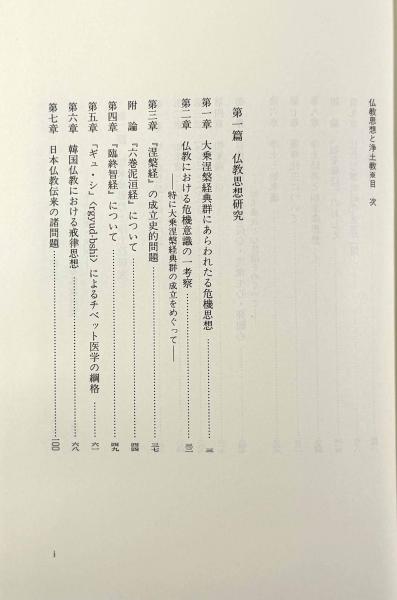 仏教思想と浄土教※目 次
第一篇 仏教思想研究
第一章 大乗涅槃経典群にあらわれたる危機思想……三
第二章 仏教における危機意識の一考察……三一
――特に大乗涅槃経典群の成立をめぐって――
第三章 『涅槃経』の成立史的問題……三七
附 論 『六巻泥洹経』について……四四
第四章 『臨終智経』について……四九
第五章 「ギュ・シ」〈rgyud-bshi〉によるチベット医学の綱格……六一
第六章 韓国仏教における戒律思想……六八
第七章 日本仏教伝来の諸問題……一〇〇
i